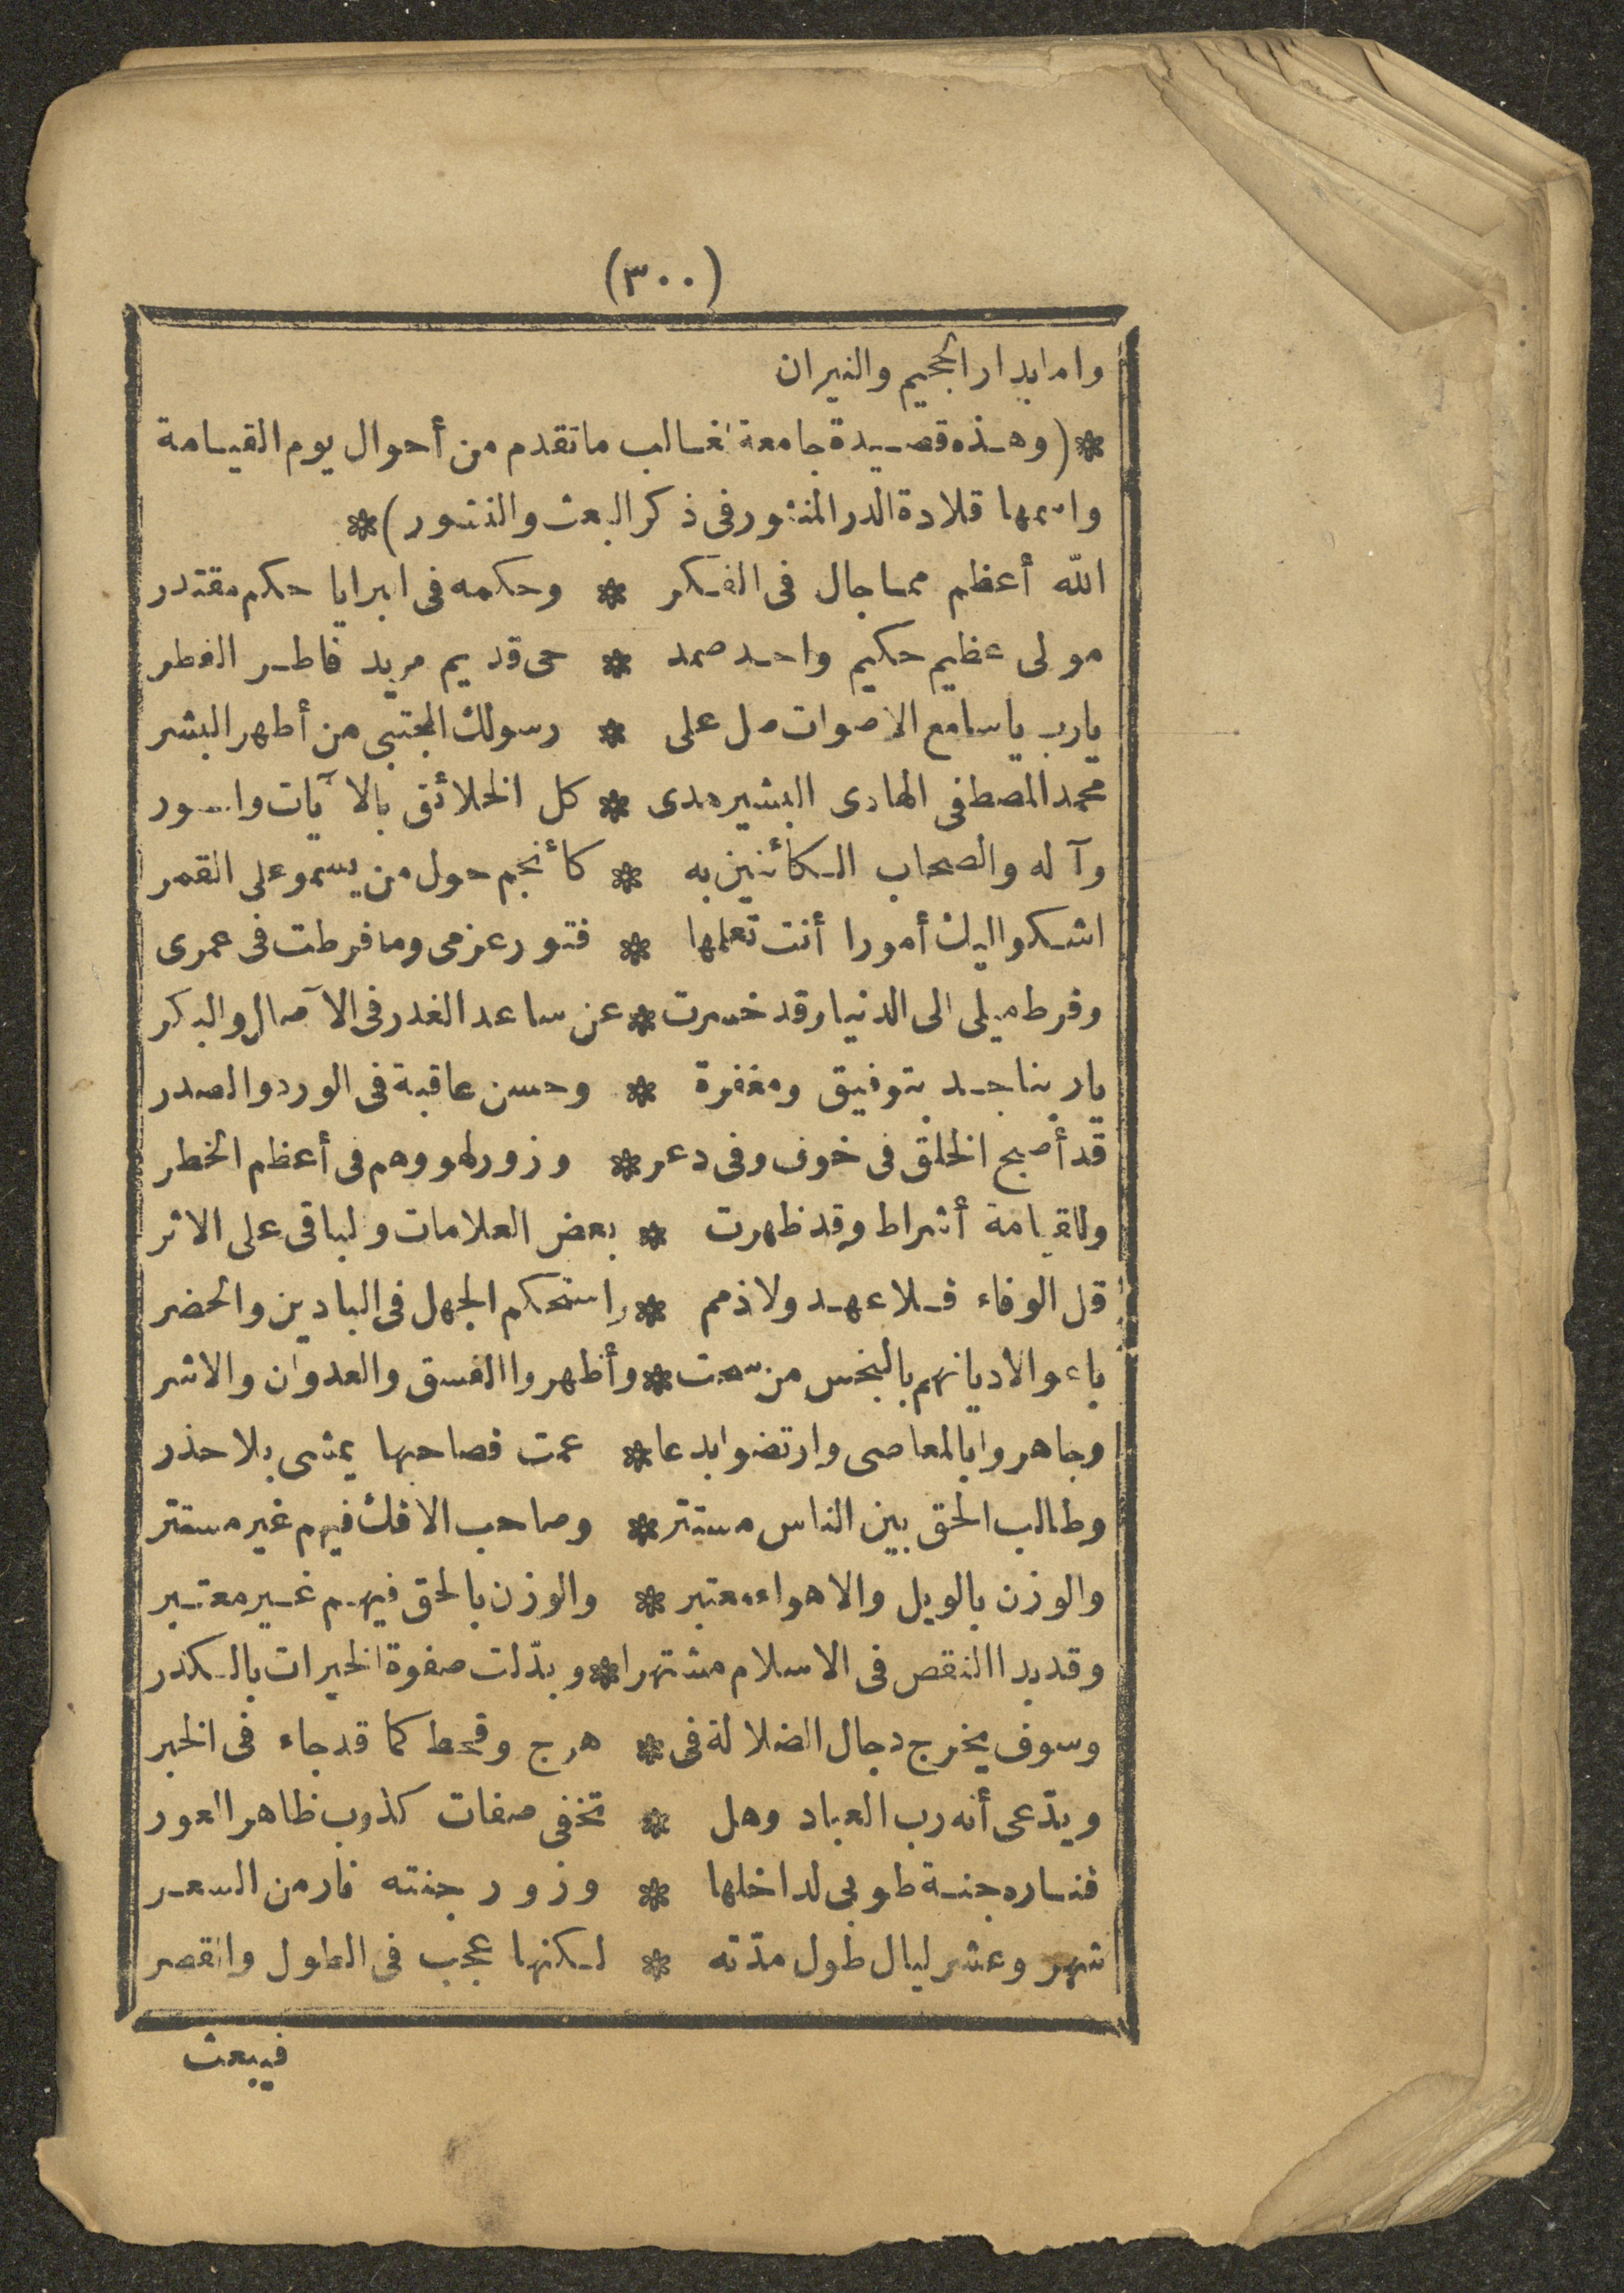 (٣٠٠)
واما بدار الجحيم والنيران
* (وهذه قصيدة جامعة لغالب ما تقدم من أحوال يوم القيامة
واسمها قلادة الدر المنثور فى ذكر البعث والنشور) *
الله أعظم مما جال فى الفكر * وحكمه فى البرايا حكم مقتدر
مولى عظيم حكيم واحد صمد * حى قديم مريد فاطر الفطر
يارب ياسامع الاصوات صل على * رسولك المجتبى من أطهر البشر
محمد المصطفى الهادى البشير هدى * كل الخلائق بالآيات والسور
وآله والصحاب الكائنين به * كأنجم حول من يسمو على القمر
اشكو اليك أمورا أنت تعلمها * فتور عزمى وما فرطت فى عمرى
وفرط ميلى الى الدنيا وقد خسرت * عن ساعد الغدر فى الآصال والبكر
ياربنا جد بتوفيق ومغفرة * وحسن عاقبة فى الورد والصدر
قد أصبح الخلق فى خوف وفى دعر * وزور لهو وهم فى أعظم الخطر
وللقيامة أشراط وقد ظهرت * بعض العلامات والباقى على الاثر
قل الوفاء فلا عهد ولا ذمم * واستحكم الجهل فى البادين والحضر
باعوا لاديانهم بالبخس من سحت * وأظهروا الفسق والعدوان والاشر
وجاهروا بالمعاصى وارتضوا بدعا * عمت فصاحبها يمشى بلا حذر
وطالب الحق بين الناس مستتر * وصاحب الافك فيهم غير مستتر
والوزن بالويل والاهواء معتبر * والوزن بالحق فيهم غير معتبر
وقد بدا النقص فى الاسلام مشتهرا * وبدّلت صفوة الخيرات بالكدر
وسوف يخرج دجال الضلالة فى * هرج وقحط كما قد جاء فى الخبر
ويدّعى أنه رب العباد وهل * تخفى صفات كذوب ظاهر العور
فناره جنة طوبى لداخلها * وزور جنته نار من السعر
شهر وعشر ليال طول مدّته * لكنها عجب فى الطول والقصر
فيبعث